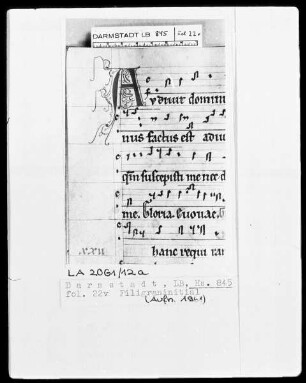 DARMSTADT LB 845 fol. 22v
Audiuit dominu
nus factus est adiu
qm̄ suscepisti me nec d
me. Gloria. Euouae.
hanc requi
LA 2061/12a
Darmstadt, LB, Hs. 845
fol. 22v Filigraninitial
(Aufn. 1961)